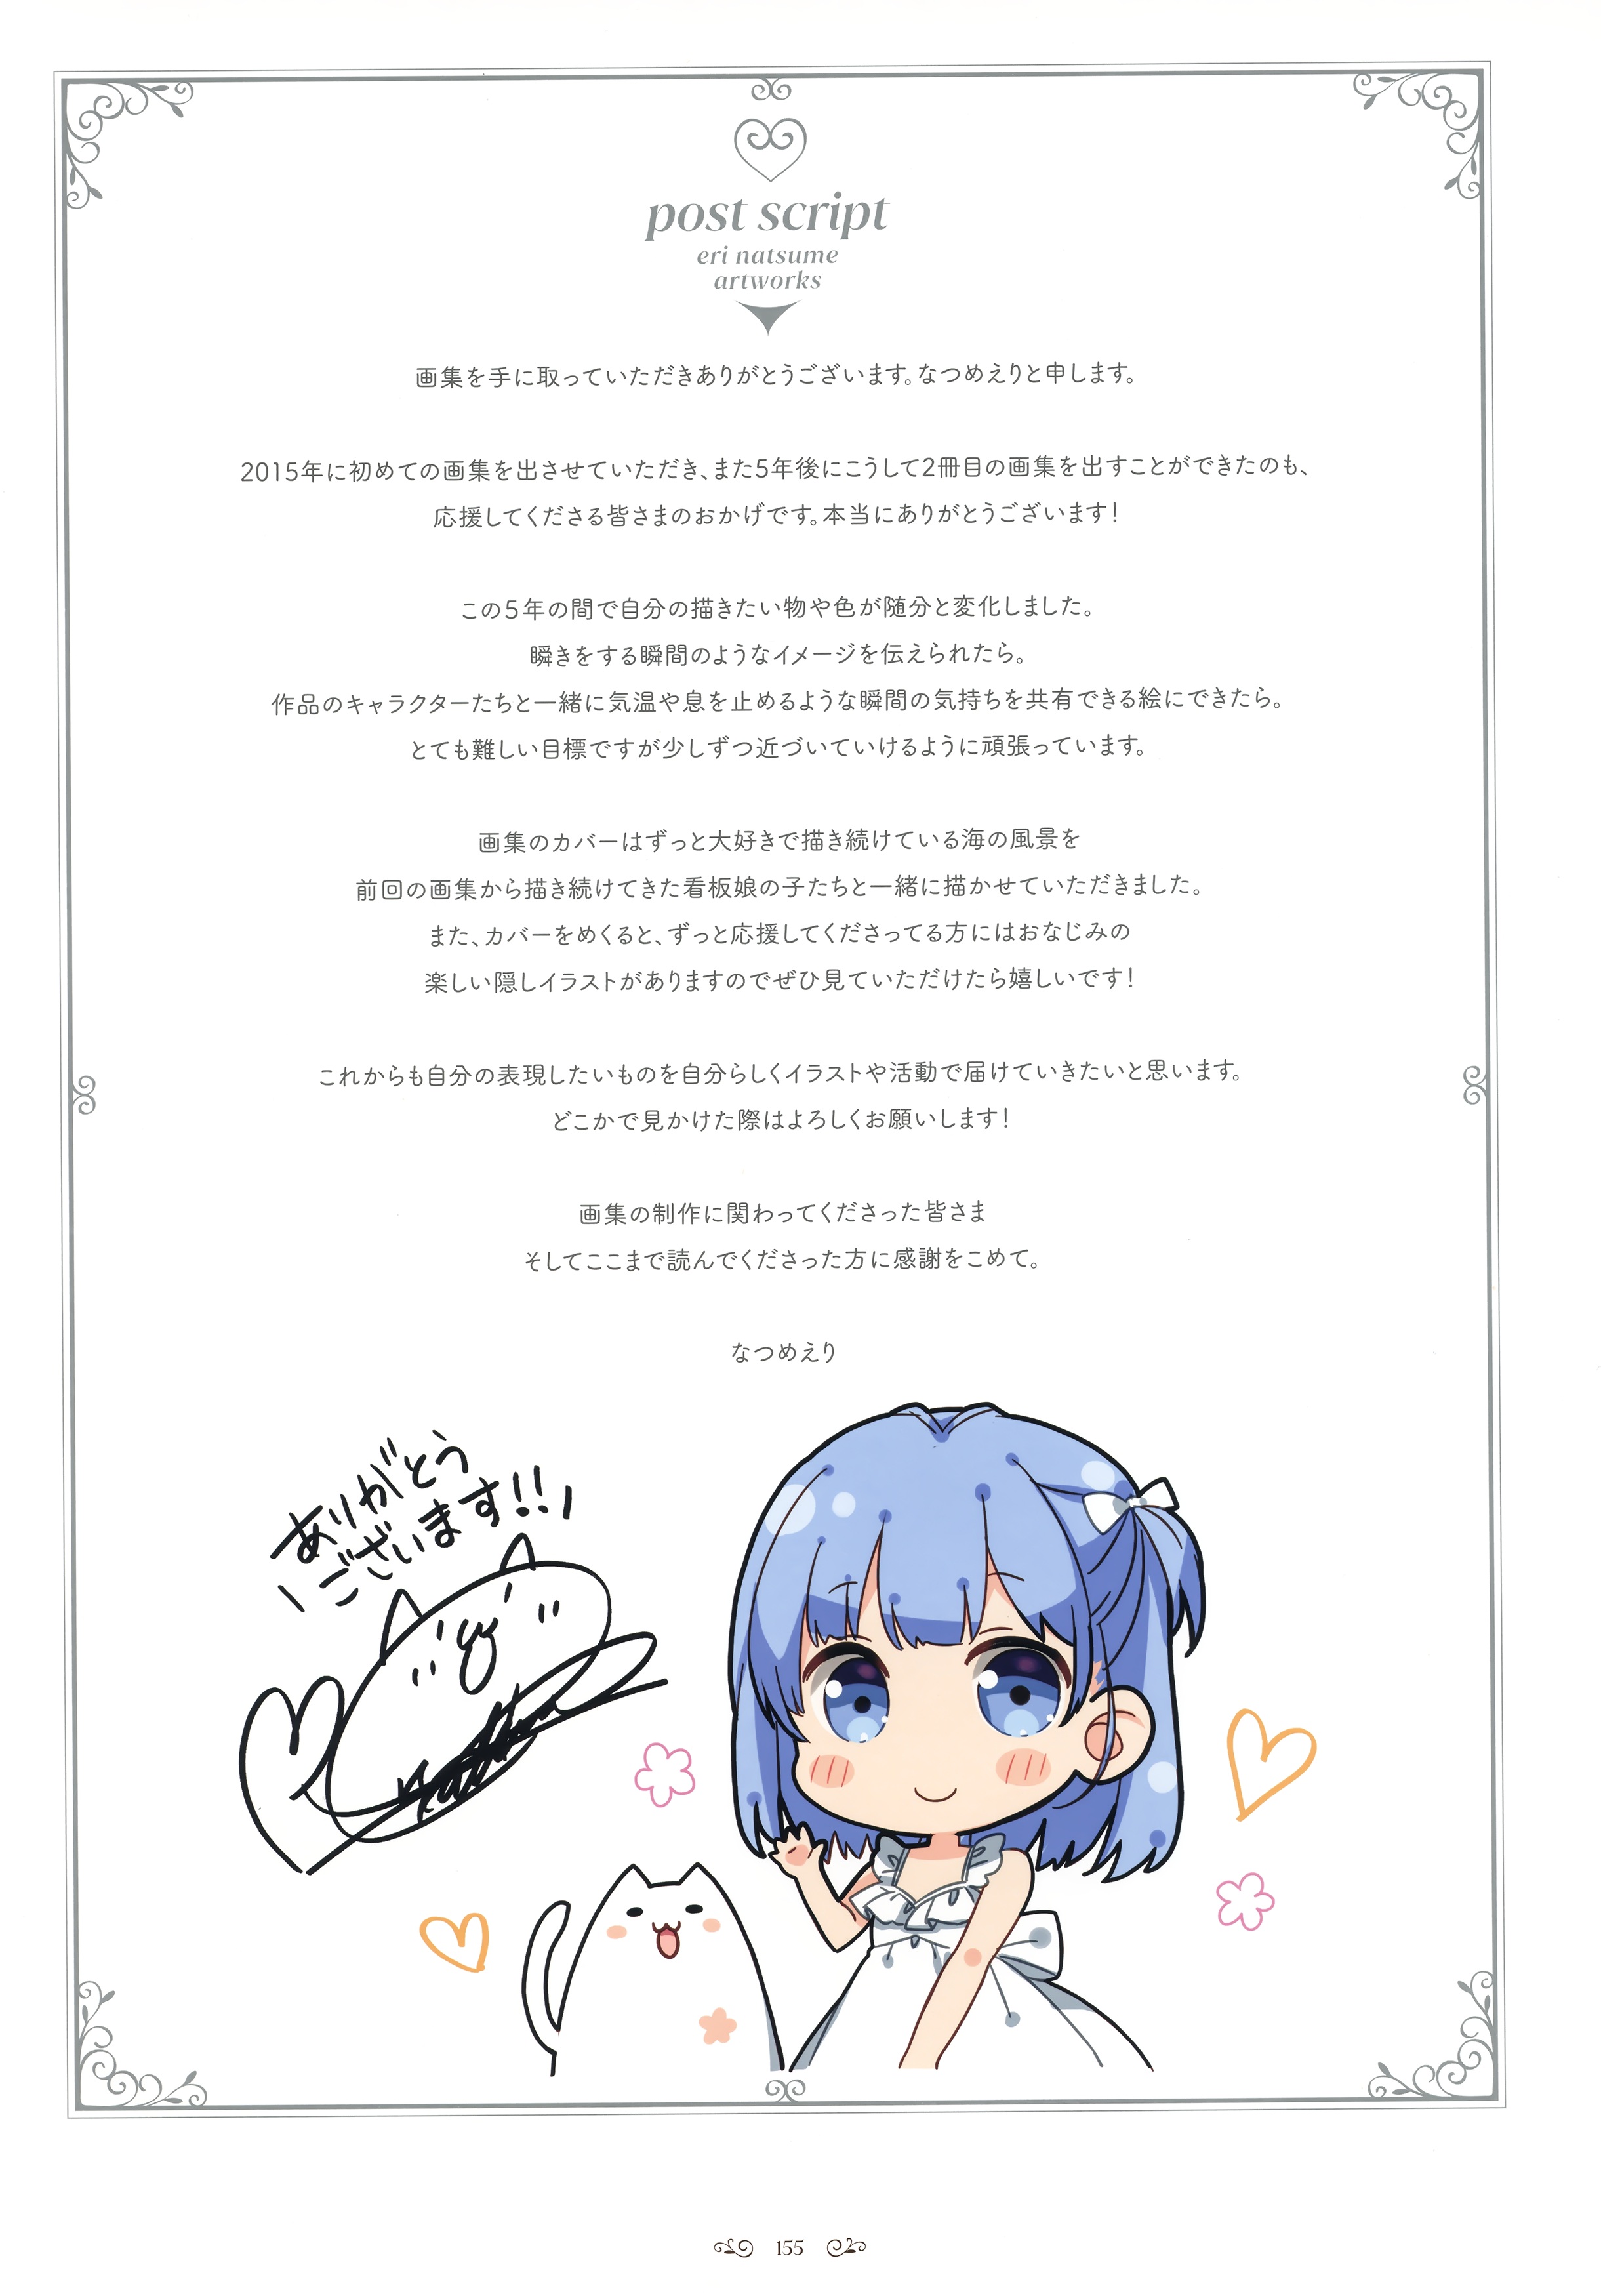 post script
eri natsume
artworks
画集を手に取っていただきありがとうございます。なつめえりと申します。
2015年に初めての画集を出させていただき、また5年後にこうして2冊目の画集を出すことができたのも、
応援してくださる皆さまのおかげです。本当にありがとうございます!
この5年の間で自分の描きたい物や色が随分と変化しました。
瞬きをする瞬間のようなイメージを伝えられたら。
作品のキャラクターたちと一緒に気温や息を止めるような瞬間の気持ちを共有できる絵にできたら。
とても難しい目標ですが少しずつ近づいていけるように頑張っています。
画集のカバーはずっと大好きで描き続けている海の風景を
前回の画集から描き続けてきた看板娘の子たちと一緒に描かせていただきました。
また、カバーをめくると、ずっと応援してくださってる方にはおなじみの
楽しい隠しイラストがありますのでぜひ見ていただけたら嬉しいです!
これからも自分の表現したいものを自分らしくイラストや活動で届けていきたいと思います。
どこかで見かけた際はよろしくお願いします!
画集の制作に関わってくださった皆さま
そしてここまで読んでくださった方に感謝をこめて。
なつめえり
ありがとう
ございます!!
155